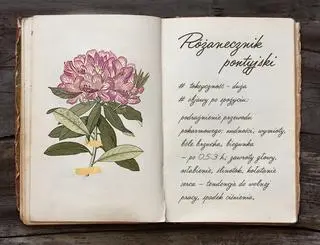 Różanecznik
pontyjski
# toksyczność - duża
# objawy po spożyciu:
podrażnienie przewodu
pokarmowego: nudności, wymioty,
bóle brzucha, biegunka
- po 0,5-3 h: zawroty głowy,
osłabienie, ślinotok, kołatanie
serca - tendencja do wolnej
pracy, spadek ciśnienia.